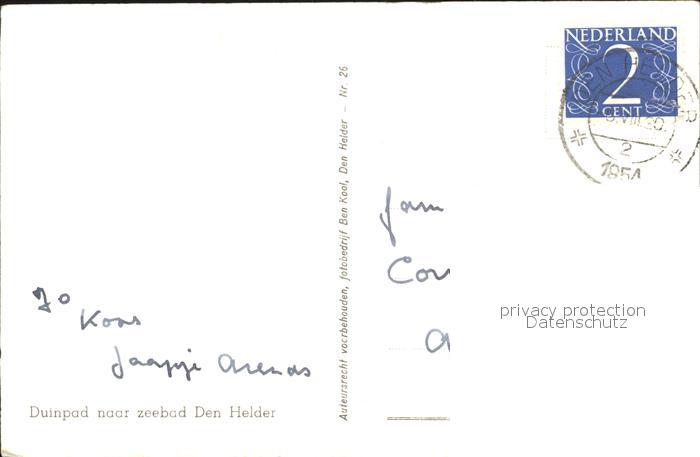 NEDERLAND
2
CENT
DEN HELDER
2
1954
Auteursrecht voorbehouden, fotobedrijf Ben Kool, Den Helder – Nr. 26
Jo
Koos
Jaapje Arends
Duinpad naar zeebad Den Helder
Fam
privacy protection
Datenschutz